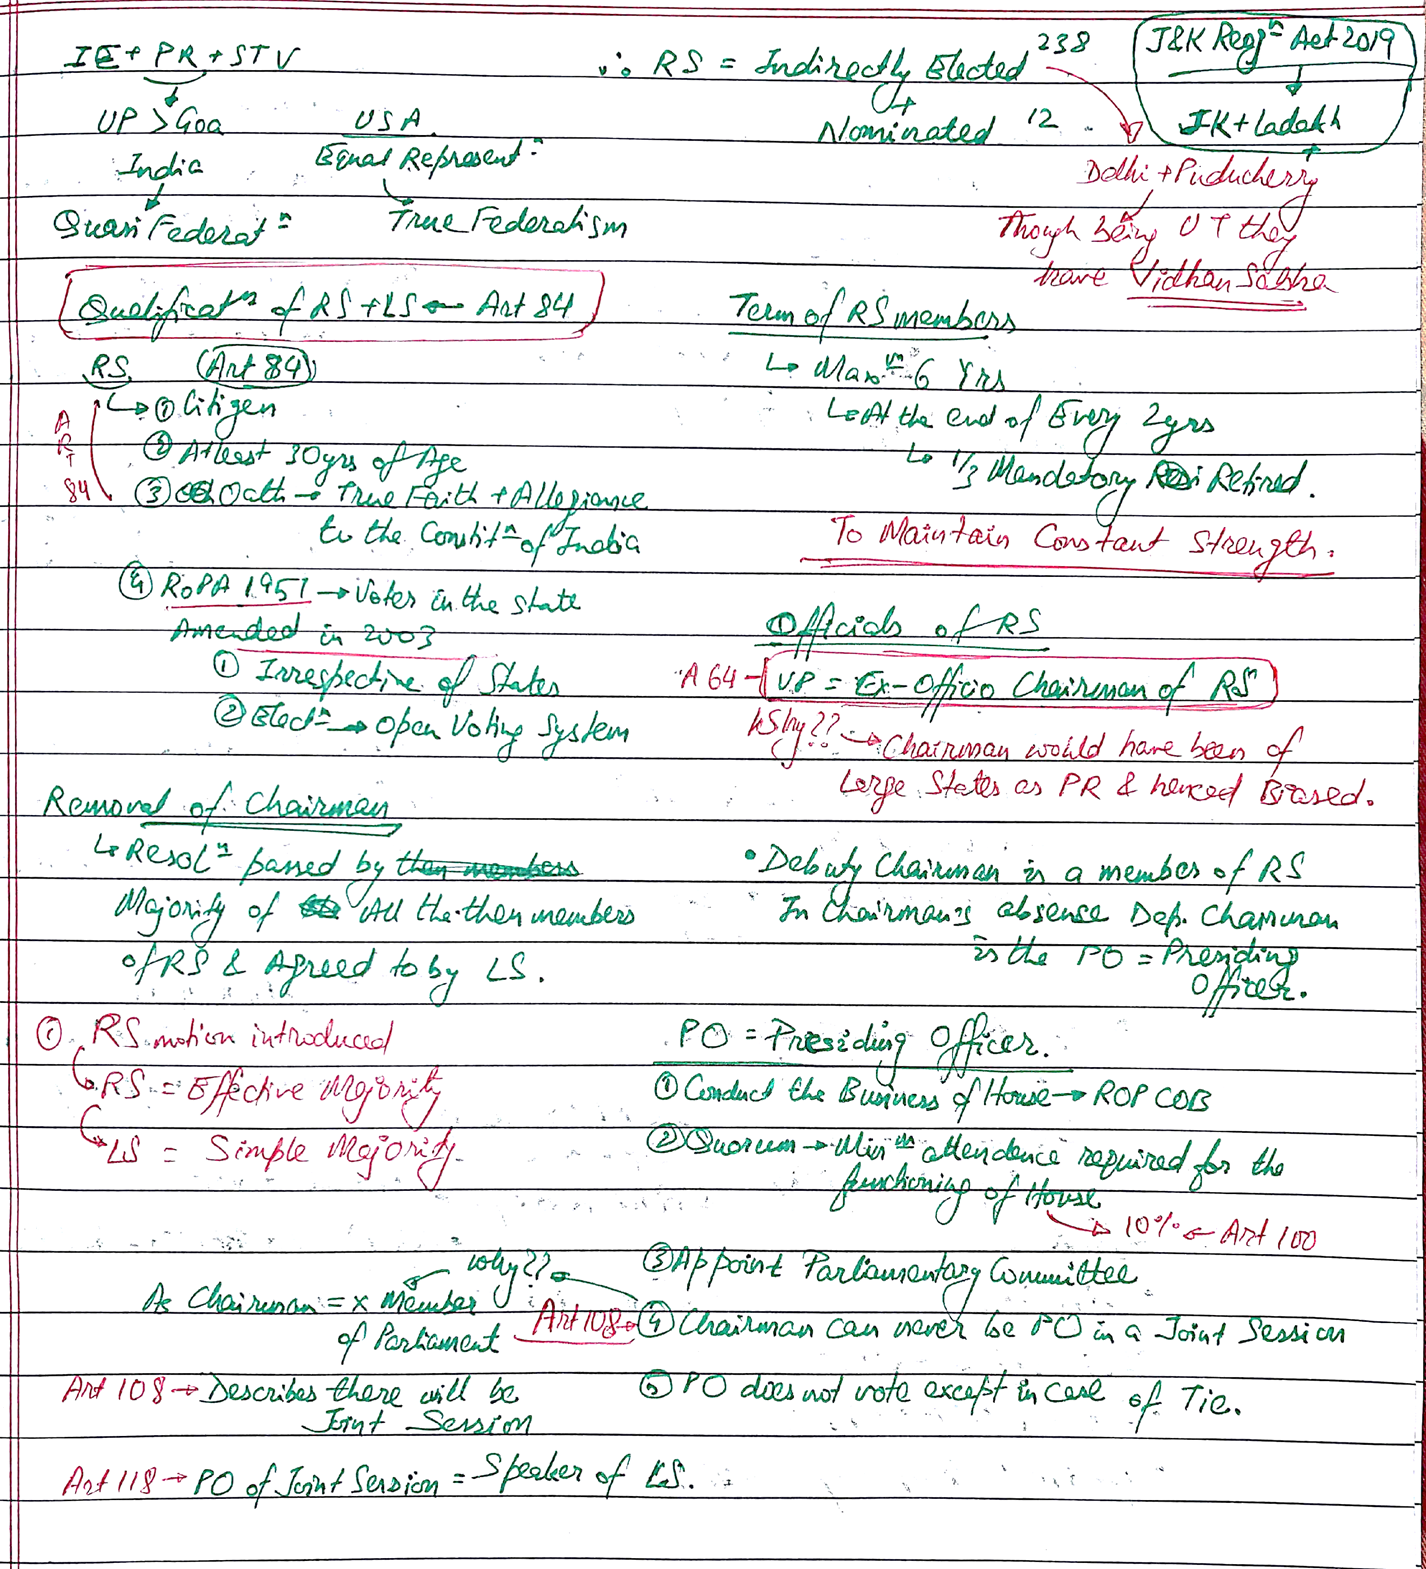 IE + PR + STV
UP > Goa
India
Quasi Federatn
USA
Equal Representn
True Federalism
∴ RS = Indirectly Elected 238
Nominated 12
J&K Regn Act 2019
JK + Ladakh
Delhi + Puducherry
Though being UT they
have Vidhan Sabha
Qualificatn of RS + LS ← Art 84
RS (Art 84)
ART 84
① Citizen
② Atleast 30yrs of Age
③ Oath → True Faith + Allegiance
to the Constitn of India
④ RoPA 1951 → Voter in the state
Amended in 2003
① Irrespective of States
② Electn → Open Voting System
Term of RS members
↳ Maxm 6 Yrs
↳ At the end of Every 2yrs
↳ 1/3 Mandatory Retired.
To Maintain Constant Strength.
Officials of RS
A 64 - VP = Ex-Officio Chairman of RS
Why?? → Chairman would have been of
Large States as PR & henced Biased.
Removal of Chairman
↳ Resoln passed by then members
Majority of All the then members
of RS & Agreed to by LS.
① RS motion introduced
RS = Effective Majority
LS = Simple Majority.
• Deputy Chairman is a member of RS
In Chairman's absense Dep. Chairman
is the PO = Presiding
Officer.
PO = Presiding Officer.
① Conduct the Business of House → ROP COB
② Quorum → Minm attendence required for the
functioning of House
→ 10% ← Art 100
③ Appoint Parliamentary Committee
Art 108 → ④ Chairman can never be PO in a Joint Session
why??
As Chairman = x Member
of Parliament
⑤ PO does not vote except in case of Tie.
Art 108 → Describes there will be
Joint Session
Art 118 → PO of Joint Session = Speaker of LS.